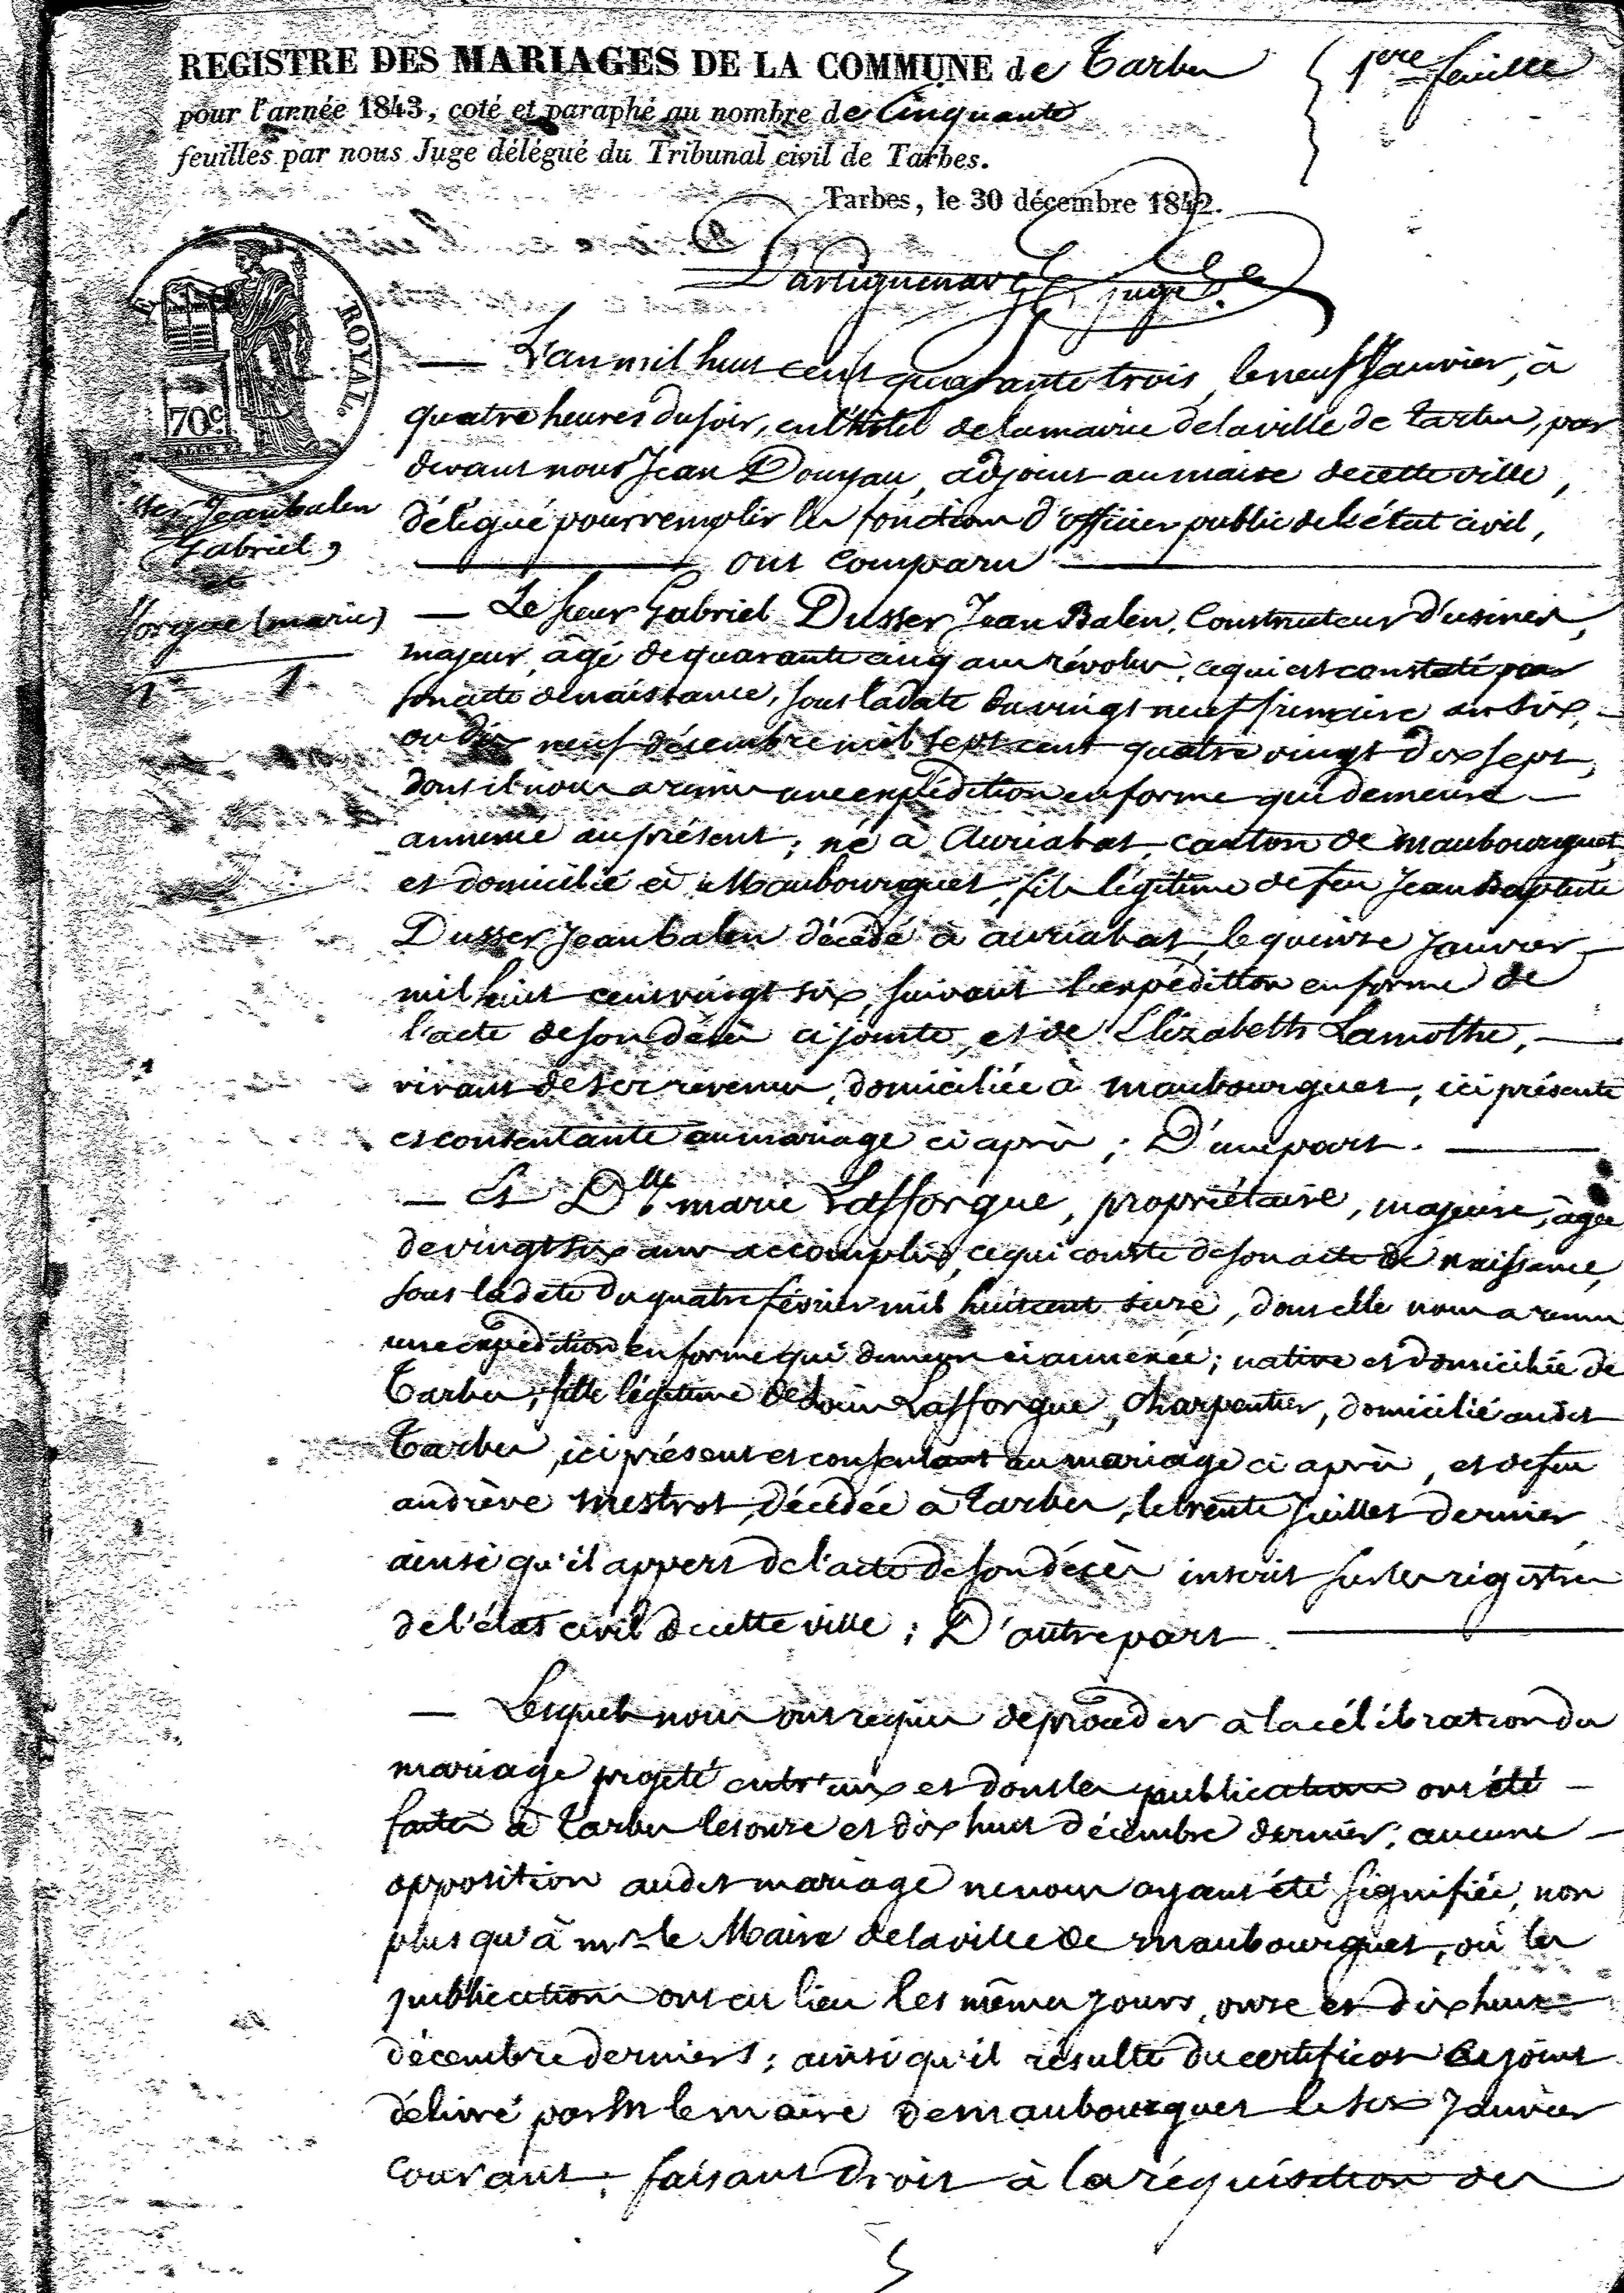 REGISTRE DES MARIAGES DE LA COMMUNE de Tarbes
1ere feuille
pour l'année 1843, coté et paraphé au nombre de Cinquante
feuilles par nous Juge délégué du Tribunal civil de Tarbes.
Tarbes, le 30 décembre 1842.
Dartiguenave juge
ROYAL.
70c
L'an mil huit cent quarante trois, le neuf Janvier, à
quatre heures du soir, en l'hôtel de la mairie de la ville de Tarbes, par
devant nous Jean Douyau, adjoint au maire de cette ville,
délégué pour remplir les fonctions d'officier public de l'état civil,
ont comparu
sser Jeanbalen
Gabriel,
et
fforgue (marie)
n° 1.
— Le sieur Gabriel Dusser Jean Balen, Constructeur d'usines,
majeur, âgé de quarante cinq ans révolus, ce qui est constaté par
son acte de naissance, sous la date du vingt neuf frimaire an six,
ou dix neuf décembre mil sept cent quatre vingt dix sept,
dont il nous a remis une expédition en forme qui demeure
annexée au présent; né à Auriabat, canton de Maubourguet,
et domicilié à Maubourguet, fils légitime de feu Jean Baptiste
Dusser Jeanbalen décédé à auriabat, le quinze Janvier
mil huit cent vingt six, suivant l'expédition en forme de
l'acte de son décès ci jointe, et de Elizabeth Lamothe,
vivant de ses revenus, domiciliée à Maubourguet, ici présente
et consentante au mariage ci après; D'une part.
— Et Dlle marie Lafforgue, propriétaire, majeure, âgée
de vingt six ans accomplis, ce qui conste de son acte de naissance,
sous la date du quatre février mil huit cent seize, dont elle nous a remis
une expédition en forme qui demeure ci annexée; native et domiciliée de
Tarbes, fille légitime de Louis Lafforgue, Charpentier, domicilié audit
Tarbes, ici présent et consentant au mariage ci après, et de feu
andrève mestrot, décédée à Tarbes, le trente Juillet dernier
ainsi qu'il appert de l'acte de son décès inscrit sur les registres
de l'état civil de cette ville; D'autre part.
— Lesquels nous ont requis de procéder à la célébration du
mariage projeté entr'eux et dont les publications ont été
faites à Tarbes les onze et dix huit décembre dernier; aucune
opposition audit mariage ne nous ayant été signifiée, non
plus qu'à mr le Maire de la ville de Maubourguet, où les
publications ont eu lieu les mêmes jours, onze et dix huit
décembre derniers; ainsi qu'il résulte du certificat ci joint
délivré par M le maire de maubourguet le six Janvier
courant; faisant droit à la réquisition des